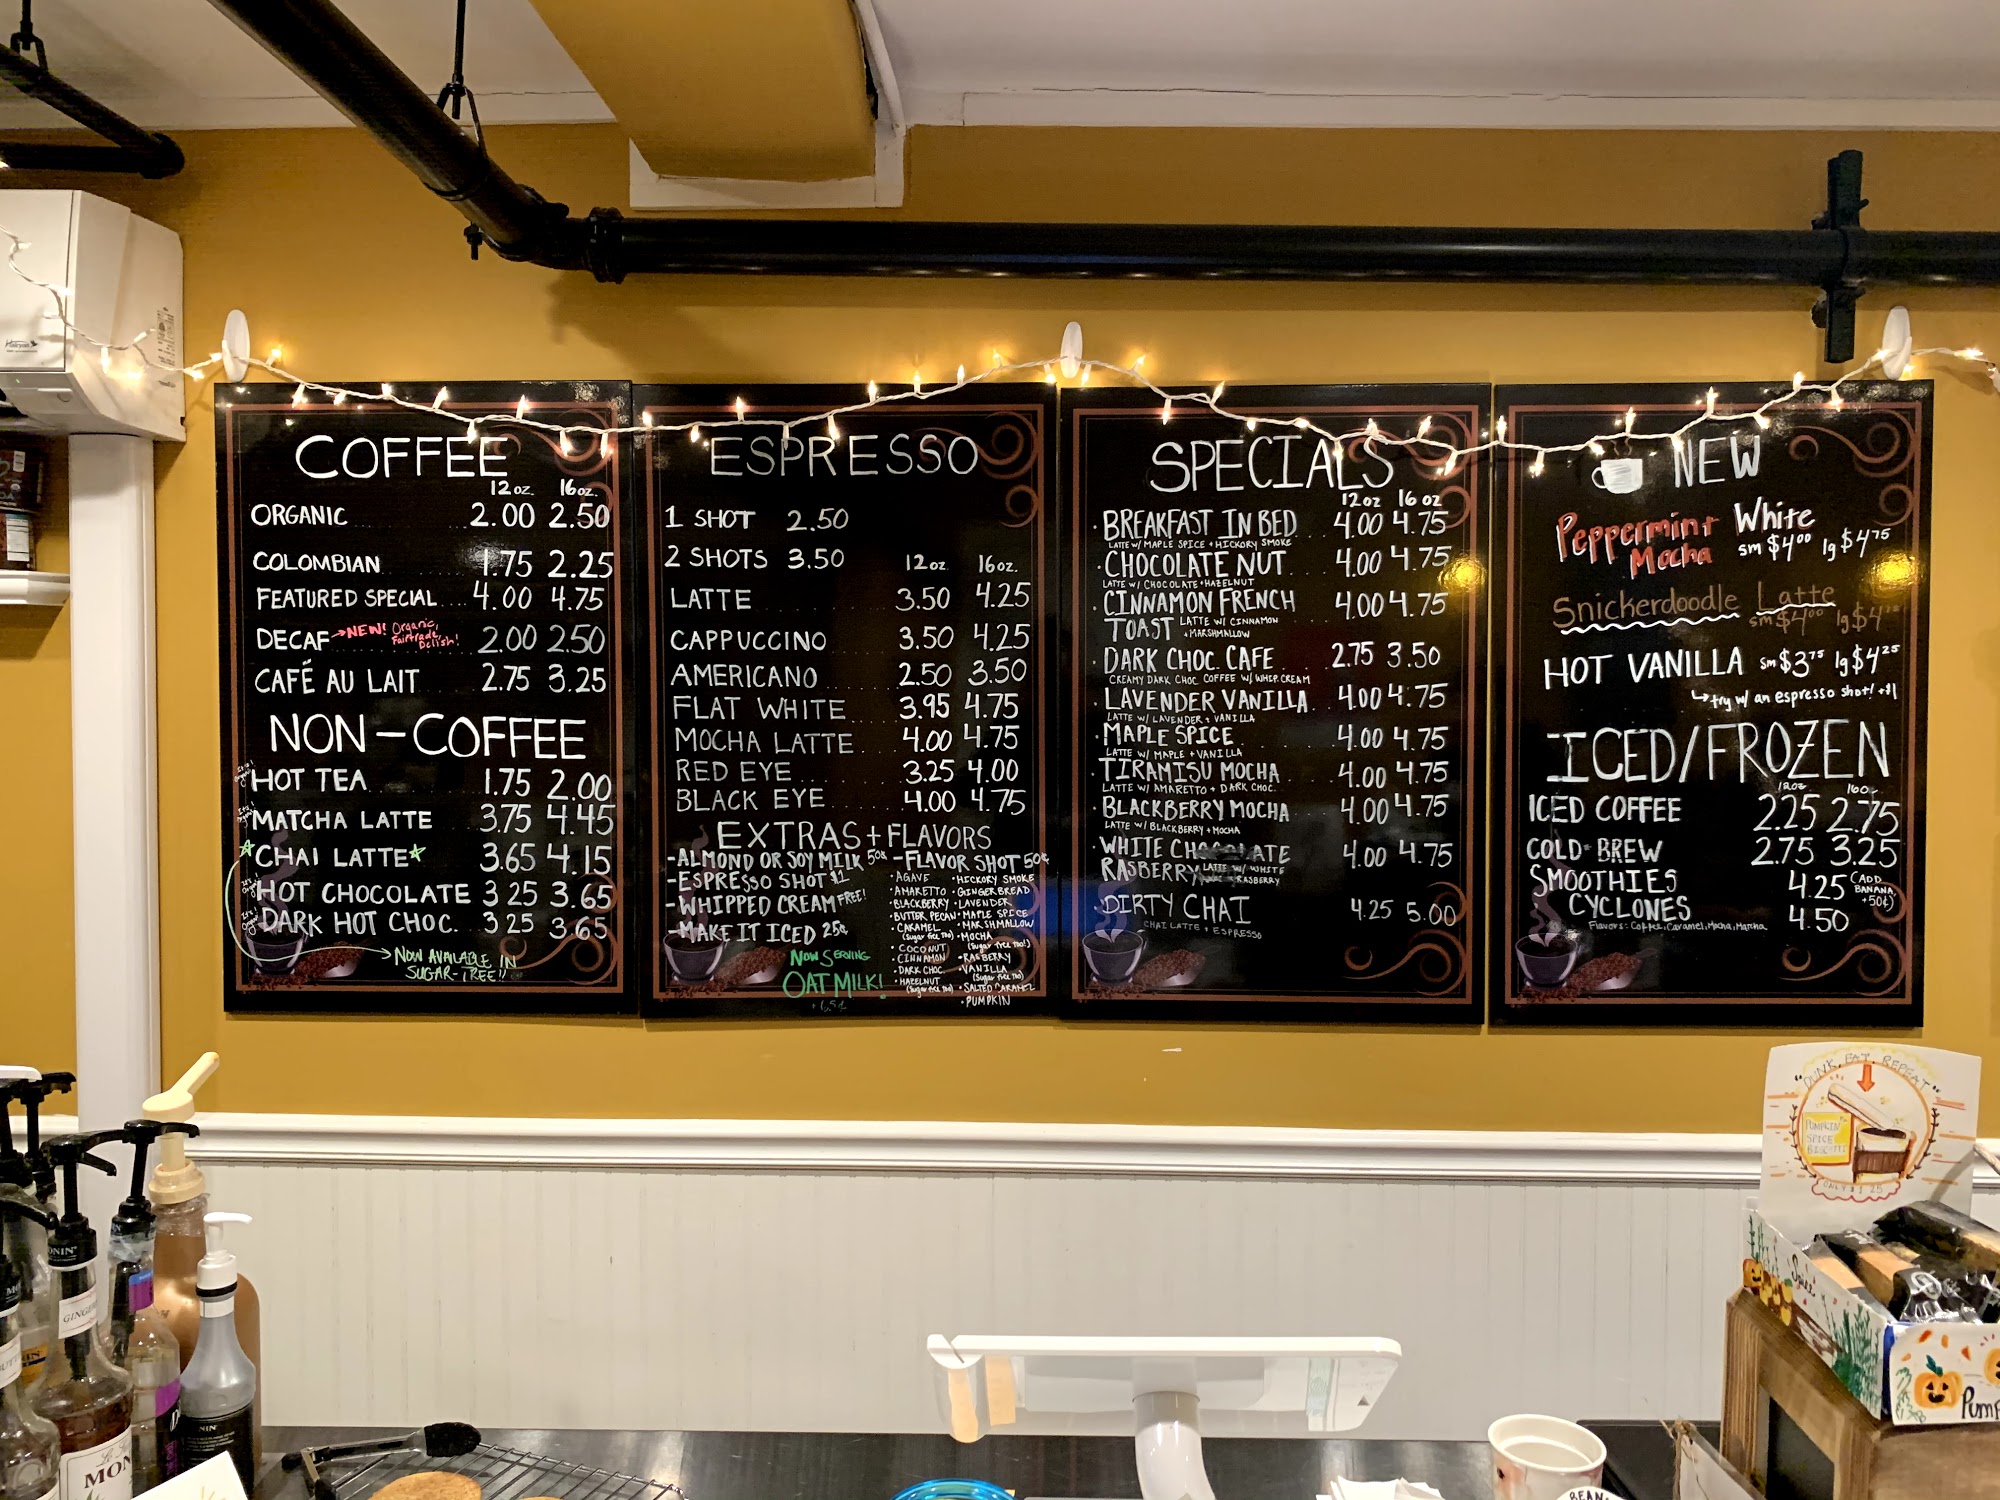 COFFEE
12 oz. 16 oz.
ORGANIC 2.00 2.50
COLOMBIAN 1.75 2.25
FEATURED SPECIAL.... 4.00 4.75
DECAF → NEW! Organic, Fairtrade, Delish! 2.00 2.50
CAFÉ AU LAIT 2.75 3.25
NON-COFFEE
HOT TEA 1.75 2.00
MATCHA LATTE 3.75 4.45
CHAI LATTE 3.65 4.15
HOT CHOCOLATE 3 25 3.65
DARK HOT CHOC. 3 25 3.65
→ NOW AVAILABLE IN
SUGAR-FREE!!
ESPRESSO
1 SHOT 2.50
2 SHOTS 3.50
12 oz 16 oz.
LATTE 3.50 4.25
CAPPUCCINO 3.50 4.25
AMERICANO 2.50 3.50
FLAT WHITE 3.95 4.75
MOCHA LATTE 4.00 4.75
RED EYE 3.25 4.00
BLACK EYE 4.00 4.75
EXTRAS + FLAVORS
-ALMOND OR SOY MILK 50¢
-ESPRESSO SHOT $1
-WHIPPED CREAM FREE!
-MAKE IT ICED 25¢
NOW SERVING
OAT MILK!
-FLAVOR SHOT 50¢
AGAVE
·AMARETTO
·BLACKBERRY
·BUTTER PECAN
·CARAMEL
(Sugar free too)
·COCONUT
·CINNAMON
·DARK CHOC.
·HAZELNUT
(Sugar free too)
·HICKORY SMOKE
·GINGERBREAD
·LAVENDER
·MAPLE SPICE
·MARSHMALLOW
·MOCHA
(Sugar free too!)
·RASBERRY
·VANILLA
(Sugar free too)
·SALTED CARAMEL
·PUMPKIN
SPECIALS
12 oz 16 oz
·BREAKFAST IN BED 4.00 4.75
LATTE W/ MAPLE SPICE + HICKORY SMOKE
·CHOCOLATE NUT 4.00 4.75
LATTE W/ CHOCOLATE + HAZELNUT
·CINNAMON FRENCH 4.00 4.75
TOAST LATTE W/ CINNAMON
+ MARSHMALLOW
·DARK CHOC. CAFE 2.75 3.50
CREAMY DARK CHOC COFFEE W/ WHIP. CREAM
·LAVENDER VANILLA 4.00 4.75
LATTE W/ LAVENDER + VANILLA
·MAPLE SPICE 4.00 4.75
LATTE W/ MAPLE + VANILLA
·TIRAMISU MOCHA 4.00 4.75
LATTE W/ AMARETTO + DARK CHOC.
·BLACKBERRY MOCHA 4.00 4.75
LATTE W/ BLACKBERRY + MOCHA
·WHITE CHOCOLATE 4.00 4.75
RASBERRY LATTE W/ WHITE
RASBERRY
·DIRTY CHAI 4.25 5.00
CHAI LATTE + ESPRESSO
NEW
Peppermint White
Mocha sm $4⁰⁰ lg $4⁷⁵
Snickerdoodle Latte
sm $4⁰⁰ lg $4
HOT VANILLA sm $3⁷⁵ lg $4²⁵
↳ try w/ an espresso shot! +$1
ICED/FROZEN
12oz 16oz
ICED COFFEE 2.25 2.75
COLD BREW 2.75 3.25
SMOOTHIES 4.25 (ADD BANANA, +50¢)
CYCLONES 4.50
Flavors: Coffee, Caramel, Mocha, Matcha
"DUNK, EAT, REPEAT"
PUMPKIN
SPICE
BISCOTTI
ONLY $1.25
Spice
MONIN